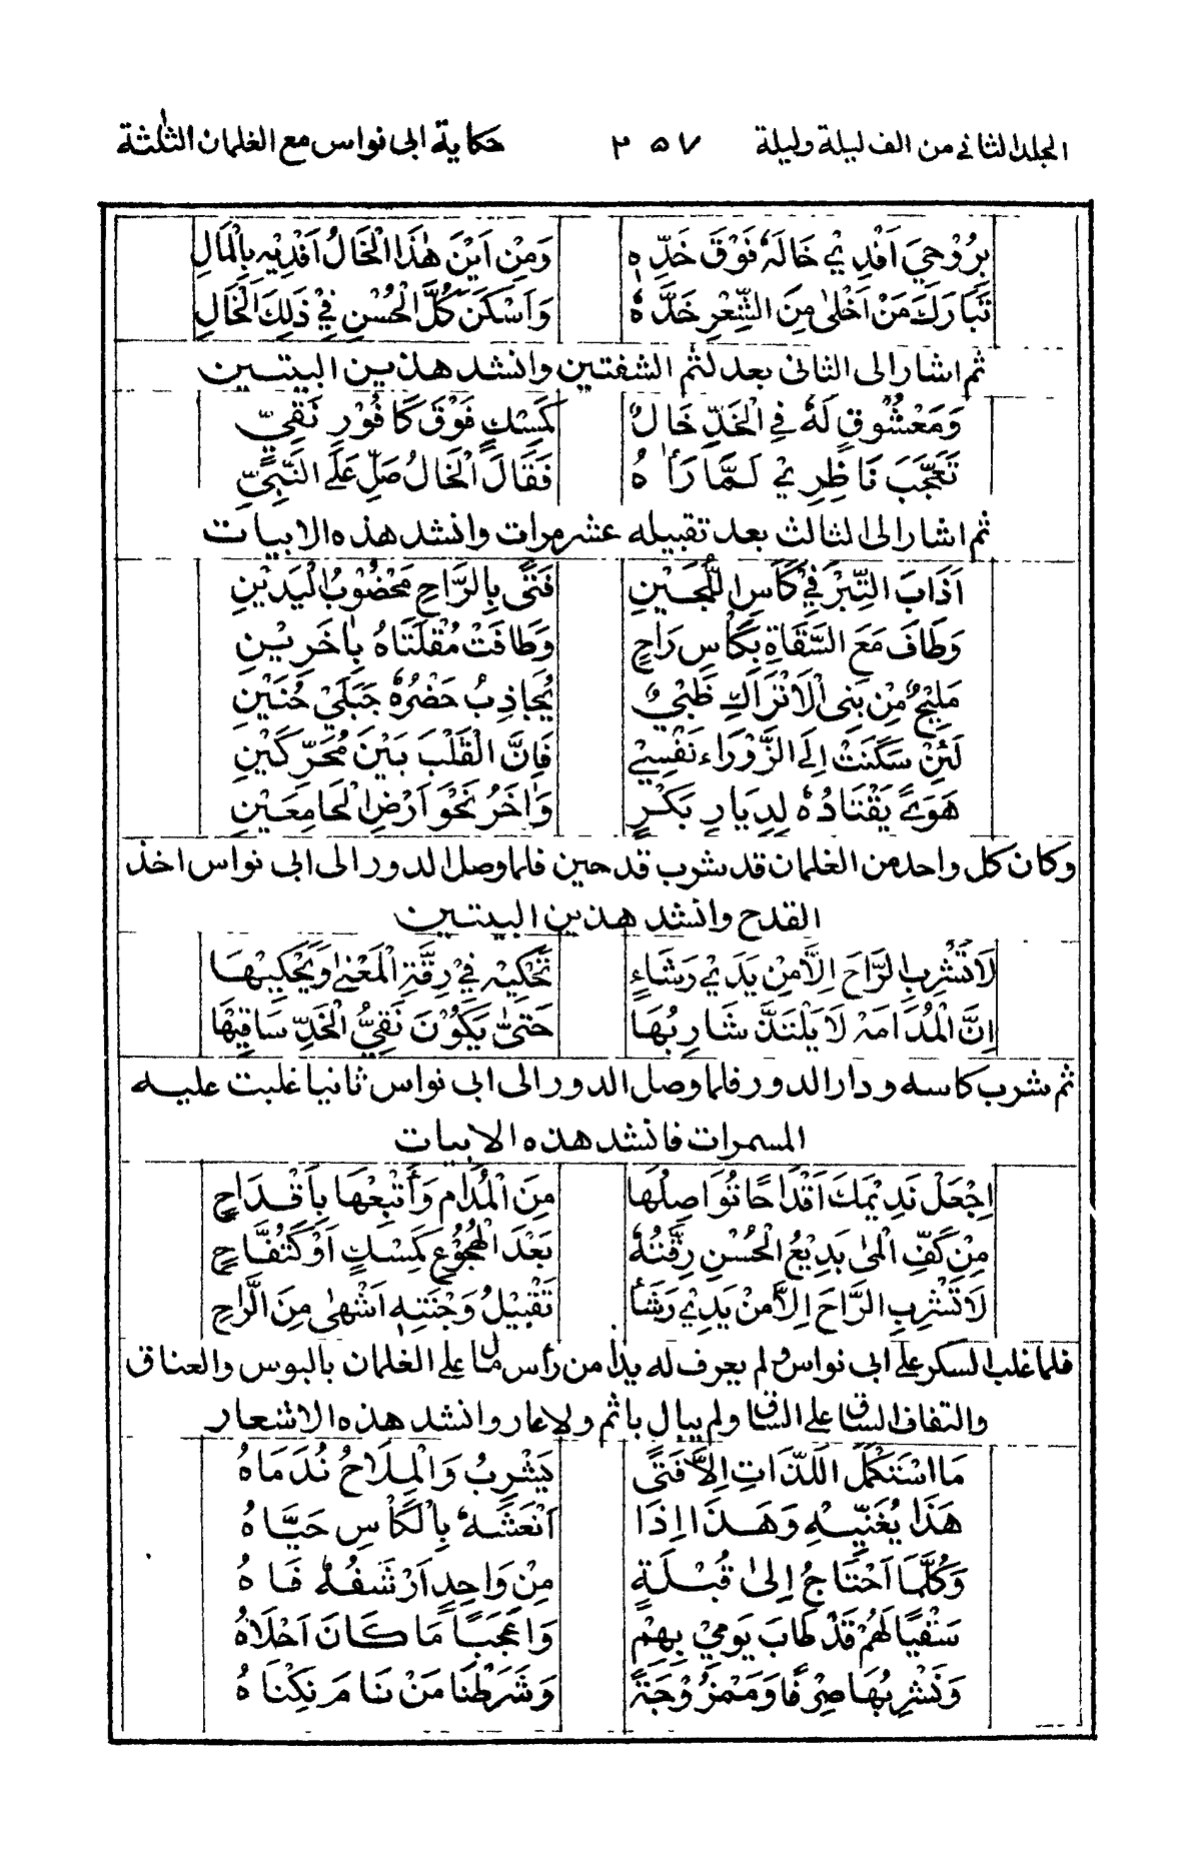 المجلد الثانى من الف ليلة وليلة ٢٥٧ حكاية ابى نواس مع الغلمان الثلثة
بِرُوْحِيَ اَفْدِيْ خَالَهُ فَوْقَ خَدِّهٖ وَمِنْ اَيْنَ هٰذَا الْخَالُ اَفْدِيْهِ بِالْمَالِ
تَبَارَكَ مَنْ اَخْلٰى مِنَ الشِّعْرِ خَدَّهُ وَاَسْكَنَ كُلَّ الْحُسْنِ فِيْ ذٰلِكَ الْخَالِ
ثم اشار الى الثانى بعد لثم الشفتين وانشد هذين البيتين
وَمَعْشُوْقٍ لَهُ فِي الْخَدِّ خَالٌ كَمِسْكٍ فَوْقَ كَافُوْرٍ نَقِيِّ
تَعَجَّبَ نَاظِرِيْ لَمَّا رَاٰهُ فَقَالَ الْخَالُ صَلِّ عَلَى النَّبِيِّ
ثم اشار الى الثالث بعد تقبيله عشر مرات وانشد هذه الابيات
اَذَابَ التِّبْرَ فِيْ كَاْسِ اللُّجَيْنِ فَتًى بِالرَّاحِ مَخْضُوْبُ الْيَدَيْنِ
وَطَافَ مَعَ السُّقَاةِ بِكَاْسِ رَاحٍ وَطَافَتْ مُقْلَتَاهُ بِاٰخَرَيْنِ
مَلِيْحٌ مِنْ بَنِى الْاَتْرَاكِ ظَبْيٌ يُجَاذِبُ خَصْرُهُ جَبَلَيْ حُنَيْنِ
لَئِنْ سَكَنَتْ اِلَى الزَّوْرَاءِ نَفْسِيْ فَاِنَّ الْقَلْبَ بَيْنَ مُحَرِّكَيْنِ
هَوًى يَقْتَادُهُ لِدِيَارِ بَكْرٍ وَاٰخَرُ نَحْوَ اَرْضِ الْجَامِعَيْنِ
وكان كل واحد من الغلمان قد شرب قدحين فلما وصل الدور الى ابى نواس اخذ
القدح وانشد هذين البيتين
لَا تَشْرِبِ الرَّاحَ اِلَّا مِنْ يَدَيْ رَشَاءٍ تَحْكِيْهِ فِيْ رِقَّةِ الْمَعْنٰى وَيَحْكِيْهَا
اِنَّ الْمُدَامَةَ لَا يَلْتَذُّ شَارِبُهَا حَتّٰى يَكُوْنَ نَقِيُّ الْخَدِّ سَاقِيْهَا
ثم شرب كاسه ودار الدور فلما وصل الدور الى ابى نواس ثانيا غلبت عليه
المسمرات فانشد هذه الابيات
اِجْعَلْ نَدِيْمَكَ اَقْدَاحًا تُوَاصِلُهَا مِنَ الْمُدَامِ وَاَتْبِعْهَا بِاَقْدَاحِ
مِنْ كَفِّ اَلْمٰى بَدِيْعُ الْحُسْنِ رِقَّتُهُ بَعْدَ الْهُجُوْعِ كَمِسْكٍ اَوْ كَتُفَّاحِ
لَا تَشْرِبِ الرَّاحَ اِلَّا مِنْ يَدَيْ رَشَأٍ تَقْبِيْلُ وَجْنَتِهٖ اَشْهٰى مِنَ الرَّاحِ
فلما غلب السكر على ابى نواس ولم يعرف له يدا من رأس مال على الغلمان بالبوس والعناق
والتفاف الساق على الساق ولم يبال باثم ولا عار وانشد هذه الاشعار
مَا اسْتَكْمَلَ اللَّذَّاتِ اِلَّا فَتًى يَشْرِبُ وَالْمِلَاحُ نُدَمَاهُ
هَذَا يُغَنِّيْهِ وَهَذَا اِذَا اَنْعَشَهُ بِالْكَاْسِ حَيَّاهُ
وَكُلَّمَا اَحْتَاجُ اِلٰى قُبْلَةٍ مِنْ وَاحِدٍ اَرْشَفُهُ فَاهُ
سَقْيًا لَهُمْ قَدْ طَابَ يَوْمِيْ بِهِمْ وَاعَجَبًا مَا كَانَ اَحْلَاهُ
وَنَشْرِبُهَا صِرْفًا وَمَمْزُوْجَةً وَشَرْطُنَا مَنْ نَامَ نِكْنَاهُ